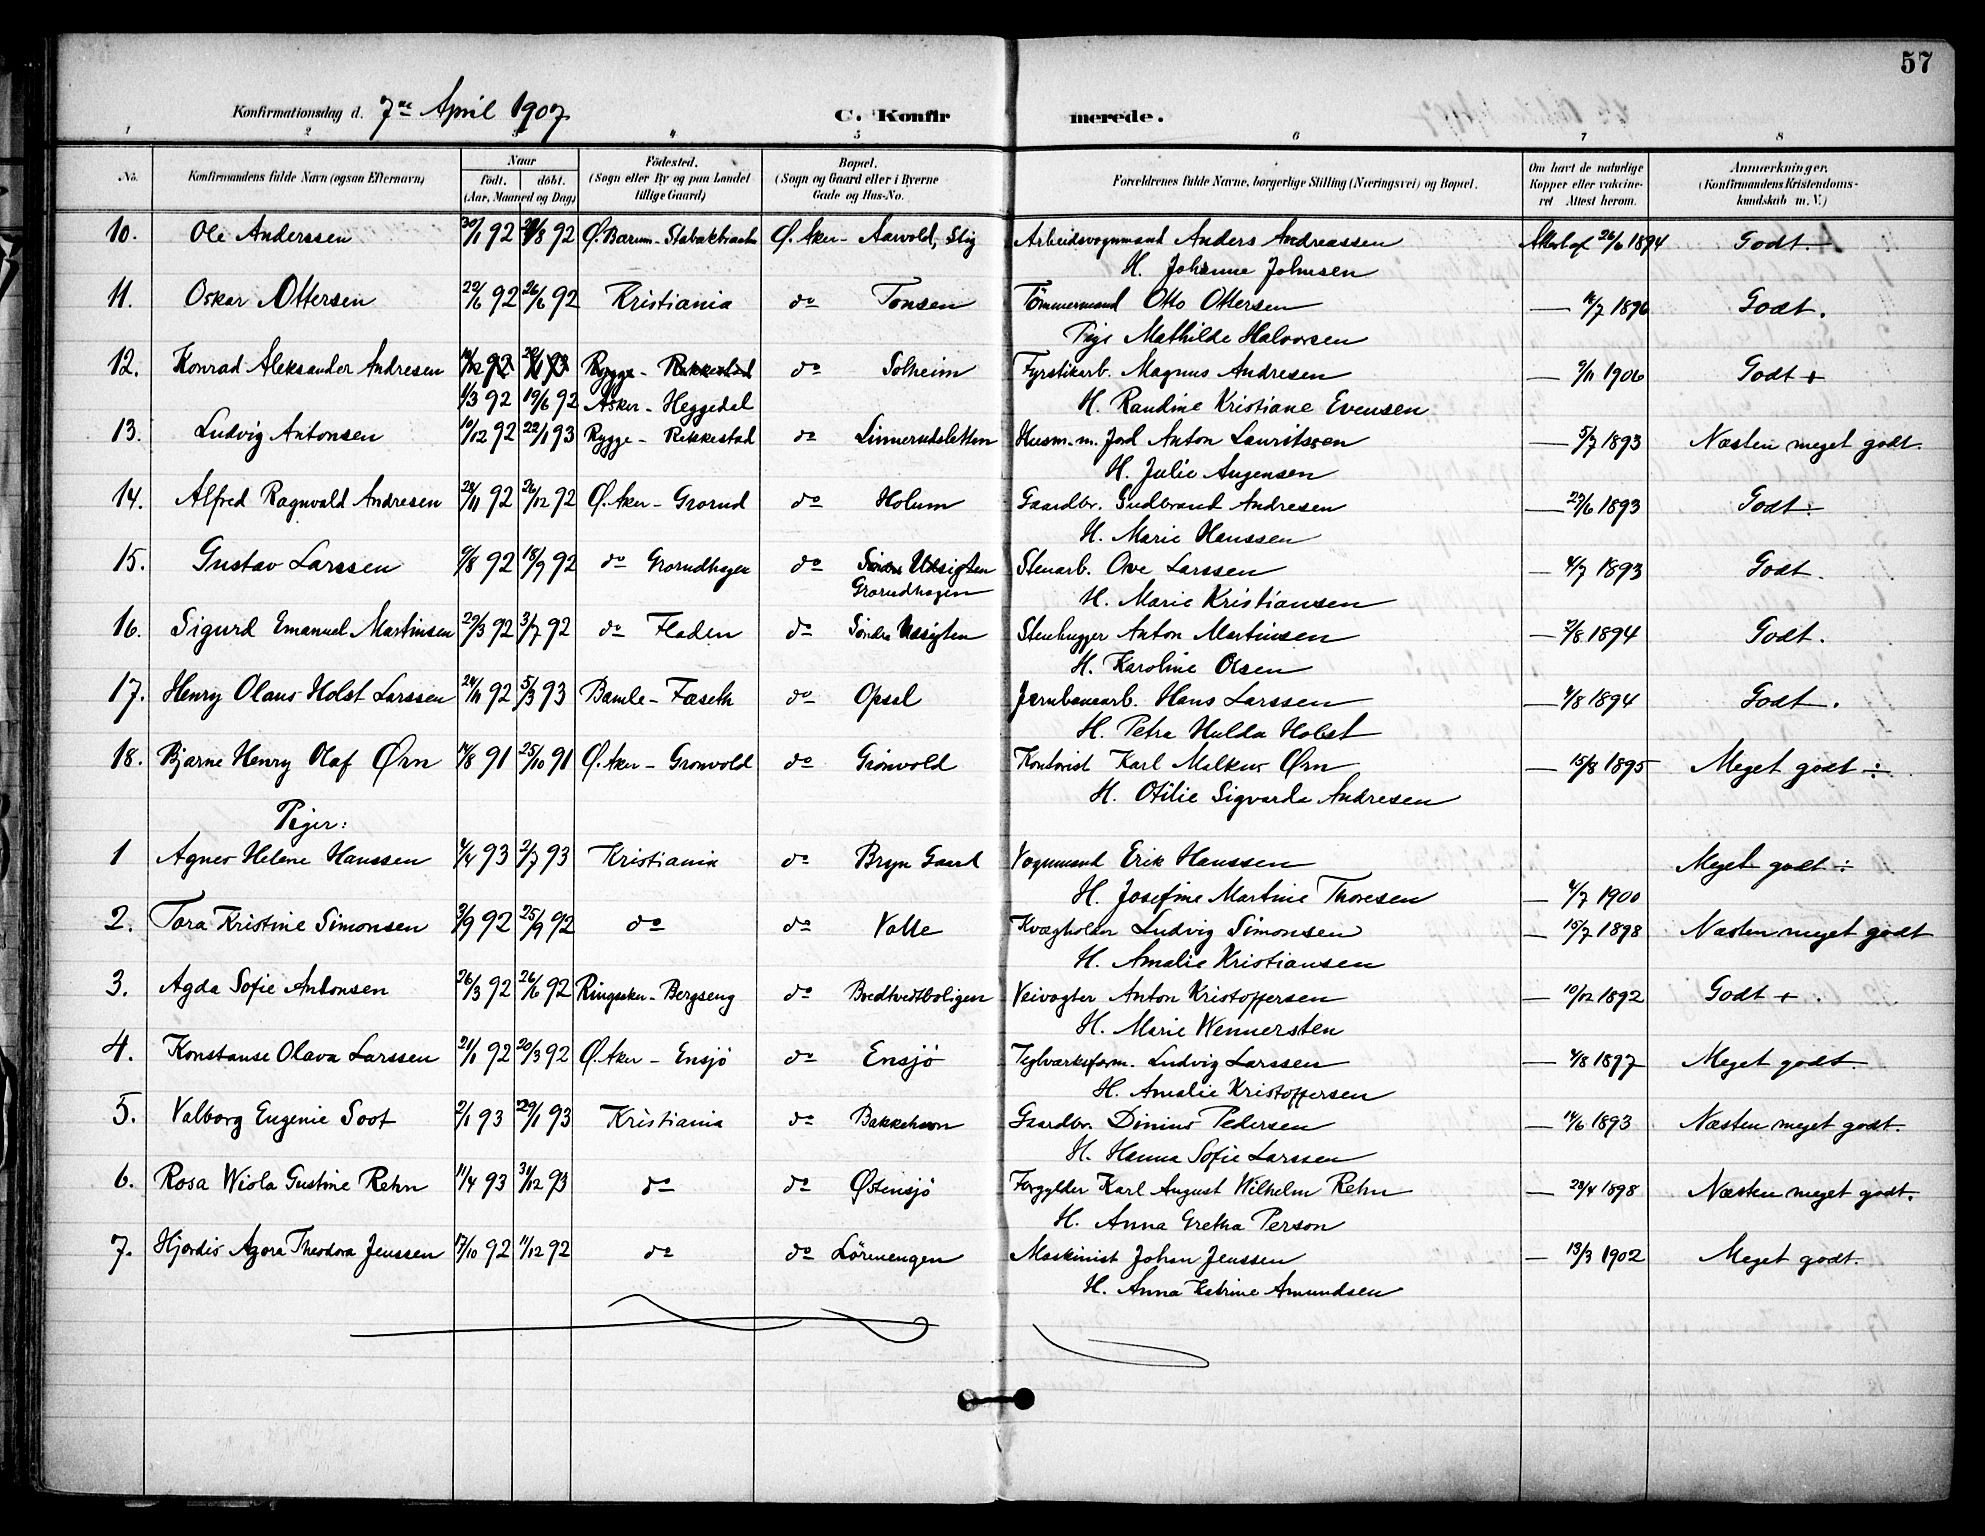 57
Konfirmationsdag d. 7de April 1907. C. Konfirmerede.
1 2 3 4 5 6 7 8
No. Konfirmandens fulde Navn (ogsaa Efternavn) Naar født. døbt. (Aar, Maaned og Dag) Fødested. (Sogn eller By og paa Landet tillige Gaard) Bopæl. (Sogn og Gaard eller i Byerne Gade og Hus-No. Forældrenes fulde Navne, borgerlige Stilling (Næringsvei) og Bopæl. Om havt de naturlige Kopper eller vakcineret Attest herom. Anmærkninger. (Konfirmandens Kristendomskundskab m. V.)
10. Ole Anderssen 30/1 92 /8 92 Ø. Bærum - Ø. Aker - Aarvold, Stig Arbeidsvognmand Anders Andreassen Attest af 26/6 1894 Godt.
H. Johanne Johnsen
11. Oskar Ottersen 22/6 92 26/6 92 Kristiania do Tonsen Tömmermand Otto Ottersen — 16/7 1896 Godt.
Pige Mathilde Halvorsen
12. Konrad Aleksander Andresen Rygge - Rekkestad do Solheim Fyrstikarb. Magnus Andresen — 9/11 1906 Godt +
1/3 92 19/6 92 Asker - Heggedal H. Randine Kristiane Evensen
13. Ludvig Antonsen 10/12 92 22/1 93 Rygge - Rekkestad do Linnerudsletten Husm. m. Jord Anton Lauritssen — 5/7 1893 Næsten meget godt.
H. Julie Augensen
14. Alfred Ragnvald Andresen 28/11 92 26/12 92 Ø. Aker - Grorud do Holum Gaardbr. Gudbrand Andresen — 27/6 1893 Godt ÷
H. Marie Hanssen
15. Gustav Larssen 9/8 92 18/9 92 do Grorudhagen do Söndre Udsigten Stenarb. Ove Larssen — 4/7 1893 Godt.
Grorudhagen H. Marie Kristiansen
16. Sigurd Emanuel Martinsen 29/3 92 3/7 92 do Fladen do Söndre Udsigten Stenhugger Anton Martinsen — 2/8 1894 Godt.
H. Karoline Olsen
17. Henry Olaus Holst Larssen 24/11 92 5/3 93 Bamle - Fæseth do Opsal Jernbanearb. Hans Larssen — 4/8 1894 Godt.
H. Petra Hulda Holst
18. Bjarne Henry Olaf Ørn 14/8 91 25/10 91 Ø. Aker - Grönvold do Grönvold Kontorist Karl Malkus Ørn — 15/8 1895 Meget godt ÷
H. Otilie Sigvarda Andresen
Piger:
1 Agnes Helene Hanssen 4/4 93 2/7 93 Kristiania do Bryn Gaard Vognmand Erik Hanssen Meget godt ÷
H. Josefine Martine Thoresen — 4/7 1900
2. Tora Kristine Simonsen 3/9 92 25/9 92 do do Valle Kvægholder Ludvig Simonsen — 15/7 1898 Næsten meget godt
H. Amalie Kristiansen
3. Agda Sofie Antonsen 26/3 92 26/6 92 Ringsaker - Bergseng do Bredtvedtboligen Veivogter Anton Kristoffersen — 10/12 1892 Godt +
H. Marie Wennersten
4. Konstanse Olava Larssen 21/1 92 20/3 92 Ø. Aker - Ensjö do Ensjö Teglværksform. Ludvig Larssen — 4/8 1897 Meget godt.
H. Amalie Kristoffersen
5. Valborg Eugenie Soot 2/1 93 29/1 93 Kristiania do Bakkehavn Gaardbr. Dinius Pedersen — 14/6 1893 Næsten meget godt.
H. Hanna Sofie Larssen
6. Rosa Wiola Gustine Rehn 11/4 93 31/12 93 do do Østensjö Forgylder Karl August Wilhelm Rehn — 28/4 1898 Næsten meget godt.
H. Anna Gretha Person
7. Hjördis Agora Theodora Jenssen 17/10 92 11/12 92 do do Lörenengen Maskinist Johan Jenssen — 13/3 1902 Meget godt.
H. Anna Katrine Amundsen